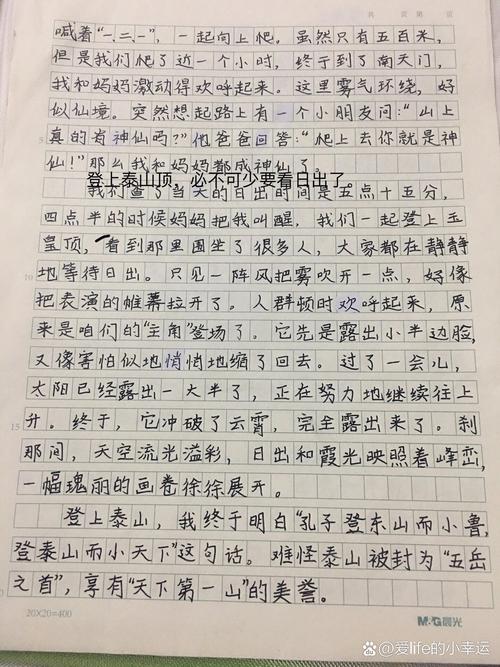 共 页 第 页
喊着“一、二、一”，一起向上爬。虽然只有五百米，
但是我们爬了近一个小时，终于到了南天门，
我和妈妈激动得欢呼起来。这里雾气环绕，好
似仙境。突然想起路上有一个小朋友问：“山上
真的有神仙吗？”他爸爸回答：“爬上去你就是神
仙！”那么我和妈妈都成神仙了。
登上泰山顶，必不可少要看日出了。
我们查了当天的日出时间是五点十五分，
四点半的时候妈妈把我叫醒，我们一起登上玉
皇顶，看到那里围坐了很多人，大家都在静静
地等待日出。只见一阵风把雾吹开一点，好像
把表演的帷幕拉开了。人群顿时欢呼起来，原
来是咱们的“主角”登场了。它先是露出小半边脸，
又像害怕似地悄悄地缩了回去。过了一会儿，
太阳已经露出一大半了，正在努力地继续往上
升。终于，它冲破了云霄，完全露出来了。刹
那间，天空流光溢彩，日出和霞光映照着峰峦，
一幅瑰丽的画卷徐徐展开。
登上泰山，我终于明白“孔子登东山而小鲁，
登泰山而小天下”这句话。难怪泰山被封为“五岳
之首”，享有“天下第一山”的美誉。
20×20=400
M&G晨光
@爱life的小幸运